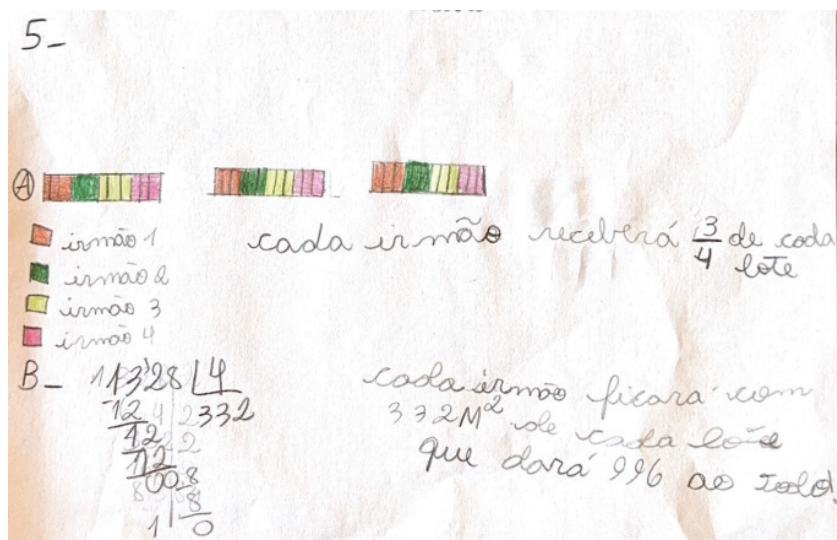 5-
A
irmão 1
irmão 2
irmão 3
irmão 4
cada irmão receberá 3/4 de cada
lote
B- 1328 | 4
-12 332
12
12
008
8
0
cada irmão ficara com
332M² de cada lote
que dará 996 ao todo!